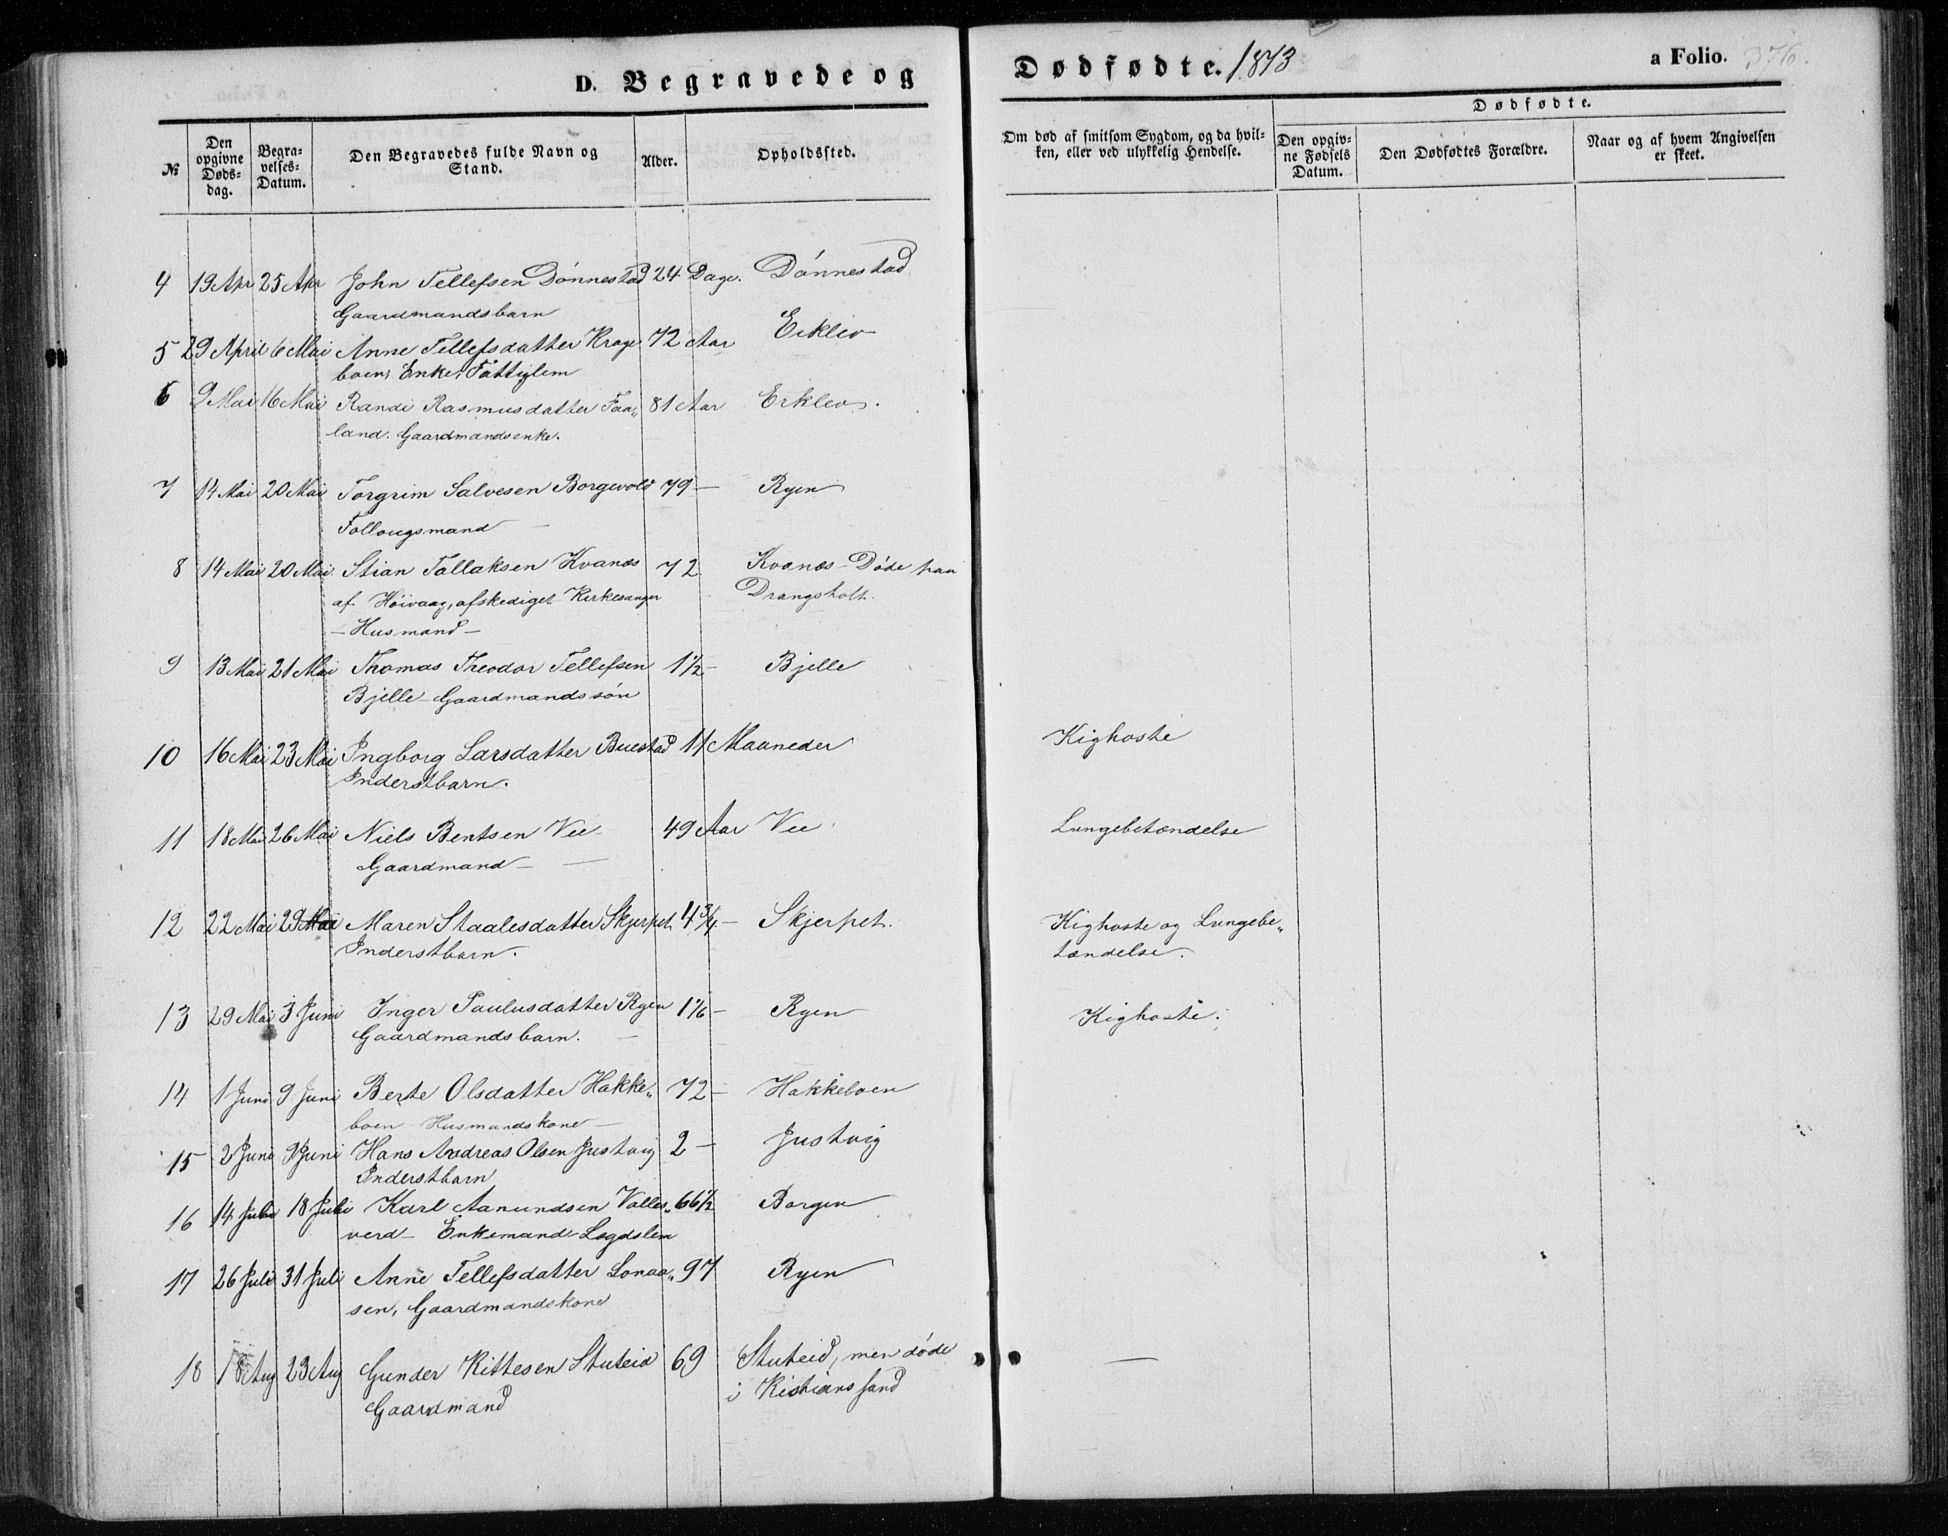 D. Begravede og Dødfødte. 1873 a Folio. 376.
№
Den opgivne Døds-dag.
Begra-velses-Datum.
Den Begravedes fulde Navn og Stand.
Alder.
Opholdssted.
Om død af smitsom Sygdom, og da hvil-ken, eller ved ulykkelig Hendelse.
Dødfødte.
Den opgiv-ne Fødsels Datum.
Den Dødfødtes Forældre.
Naar og af hvem Angivelsen er skeet.
4 19 Apr 25 Apr John Tellefsen Dønnestad 24 Dage. Dønnestad
Gaardmandsbarn
5 29 April 6 Mai Anne Tellefsdatter Krage 72 Aar Erklev
boen, Enke, Fattiglem
6 9 Mai 16 Mai Randi Rasmusdatter Faa„ 81 Aar Erklev.
land. Gaardmandsenke.
7 14 Mai 20 Mai Torgrim Salvesen Borgevold 79 — Ryen
Follougsmand —
8 14 Mai 20 Mai Stian Tallaksen Kvanæs 72 Kvanæs - Døde paa
af Høivaag, afskediget Kirkesanger Drangsholt.
— Husmand —
9 13 Mai 21 Mai Thomas Theodor Tellefsen 1½ — Bjelle
Bjelle - Gaardmandssøn
10 16 Mai 23 Mai Ingborg Larsdatter Buestad 11 Maaneder Kighoste
Inderstbarn.
11 18 Mai 26 Mai Niels Bentsen Vee 49 Aar Vee. Lungebetændelse
Gaardmand — —
12 22 Mai 29 Mai Maren Staalesdatter Skjerpet 4¾ — Skjerpet. Kighoste og Lungebe„
Inderstbarn. tændelse.
13 29 Mai 3 Juni Inger Paulusdatter Ryen 1⅙ — Ryen Kighoste.
Gaardmandsbarn. —
14 1 Juni 9 Juni Berte Olsdatter Hakke„ 72 — Hakkeboen
boen - Husmandskone —
15 2 Juni 9 Juni Hans Andreas Olsen Justvig 2 — Justvig
Inderstbarn
16 14 Juli 18 Juli Karl Aanundsen Valles„ 66½ Borgen
verd - Enkemand - Lægdslem
17 26 Juli 31 Juli Anne Tellefsdatter Lonaa„ 97 Ryen
sen, Gaardmandskone
18 18 Aug 23 Aug Gunder Kittesen Stuteid 69 Stuteid, men døde —
Gaardmand i Kistianssand